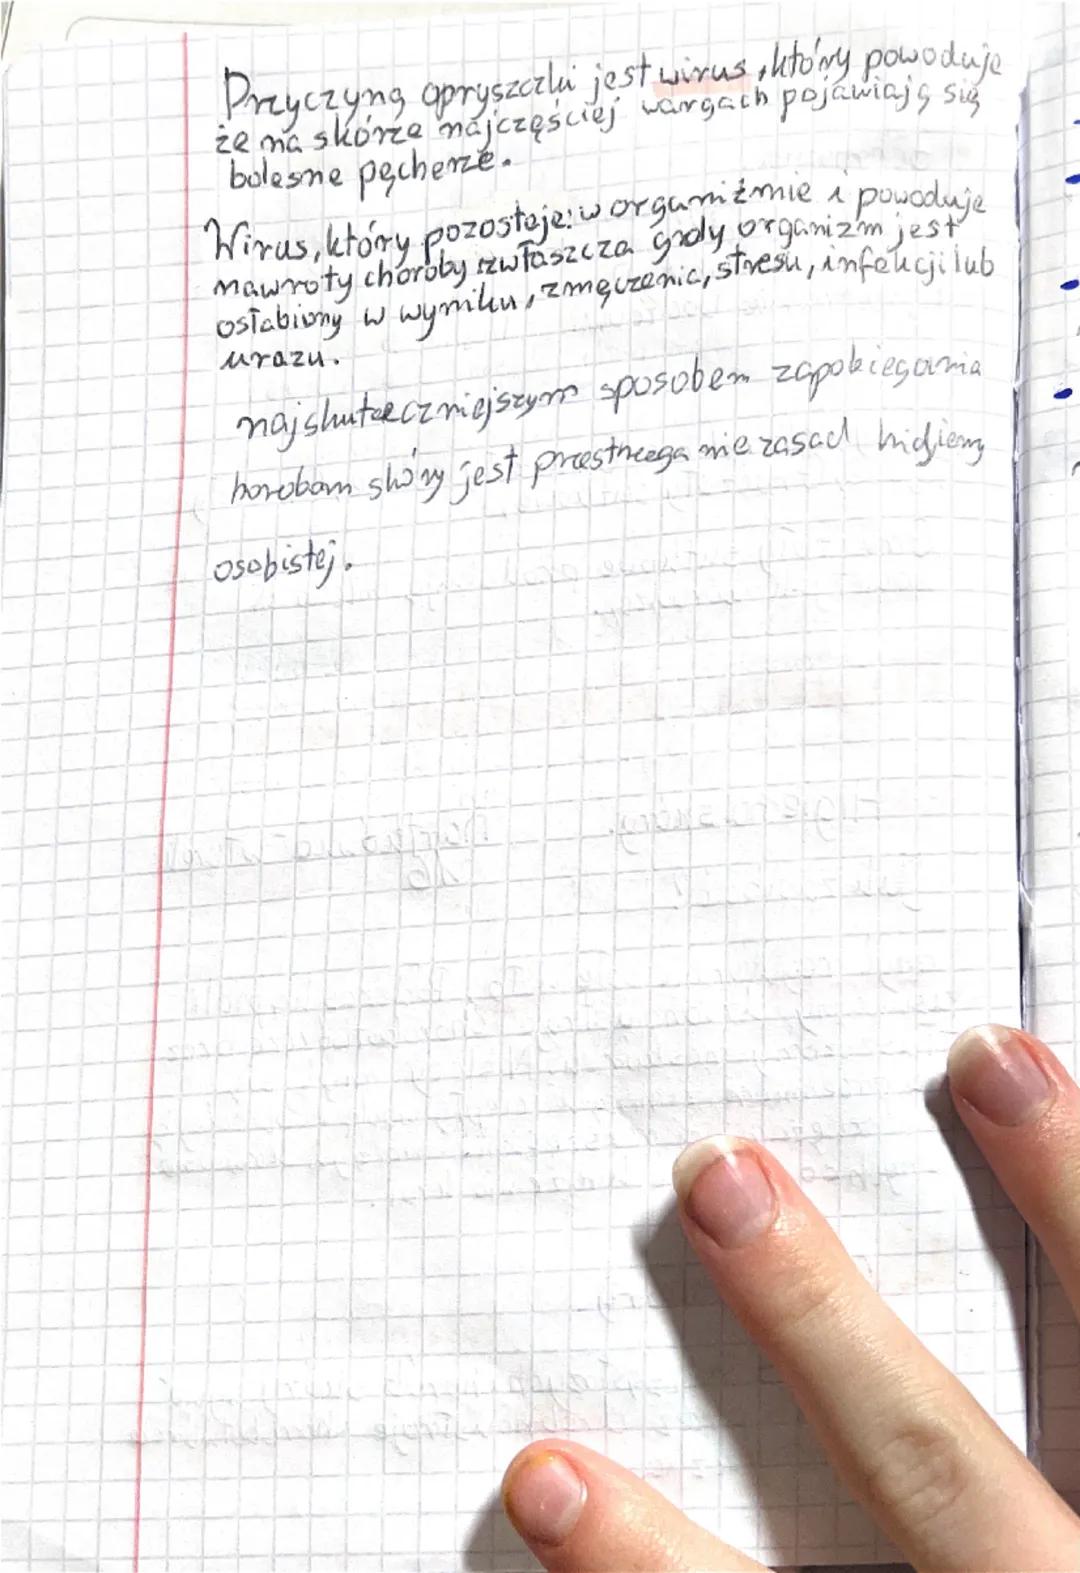 Przyczyną opryszczki jest wirus, który powoduje
że na skórze najczęściej wargach pojawiają się
bolesne pęcherze.
Wirus, który pozostaje w organiźmie i powoduje
nawroty choroby zwłaszcza gdy organizm jest
osłabiony w wyniku, zmęczenia, stresu, infekcji lub
urazu.
najskuteczniejszym sposobem zapobiegania
horobom skóry jest przestrzeganie zasad higieny
osobistej.